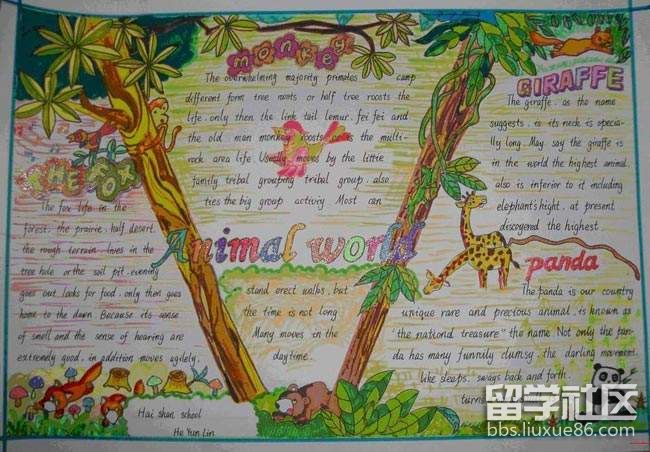 monkey
The overwhelming majority primates camp
different form tree nants or half tree roosts the
life, only then the link tail lemur. fei fei and
the old man monkey roosts or is the multi-
rock area life. Usually moves by the little
family tribal grouping tribal group also
ties the big group activiy. Most can
stand erect walks, but
the time is not long
Many moves in the
daytime.
THE FOX
The fox life in the
forest, the prairie, half desert,
the rough terrain, lives in the
tree hole or the soil pit, evening
goes out, looks for food, only then goes
home to the dawn. Because its sense
of smell and the sense of hearing are
extremely good, in addition moves agilely.
Animal world
GIRAFFE
The giraffe, as the name
suggests, is its neck is specia-
lly long. May say the giraffe is
in the world the highest animal,
also is inferior to it including
elephant's hight, at present
discoyered the highest.
panda
The panda is our country
unique rare and precious animal, is known as
"the nationd treasure" the name. Not only the pan-
da has many funnily clumsy, the darling movement,
like sleeps, sways back and forth,
turns
Hai shan school
He Yun Lin
留学社区
bbs.liuxue86.com